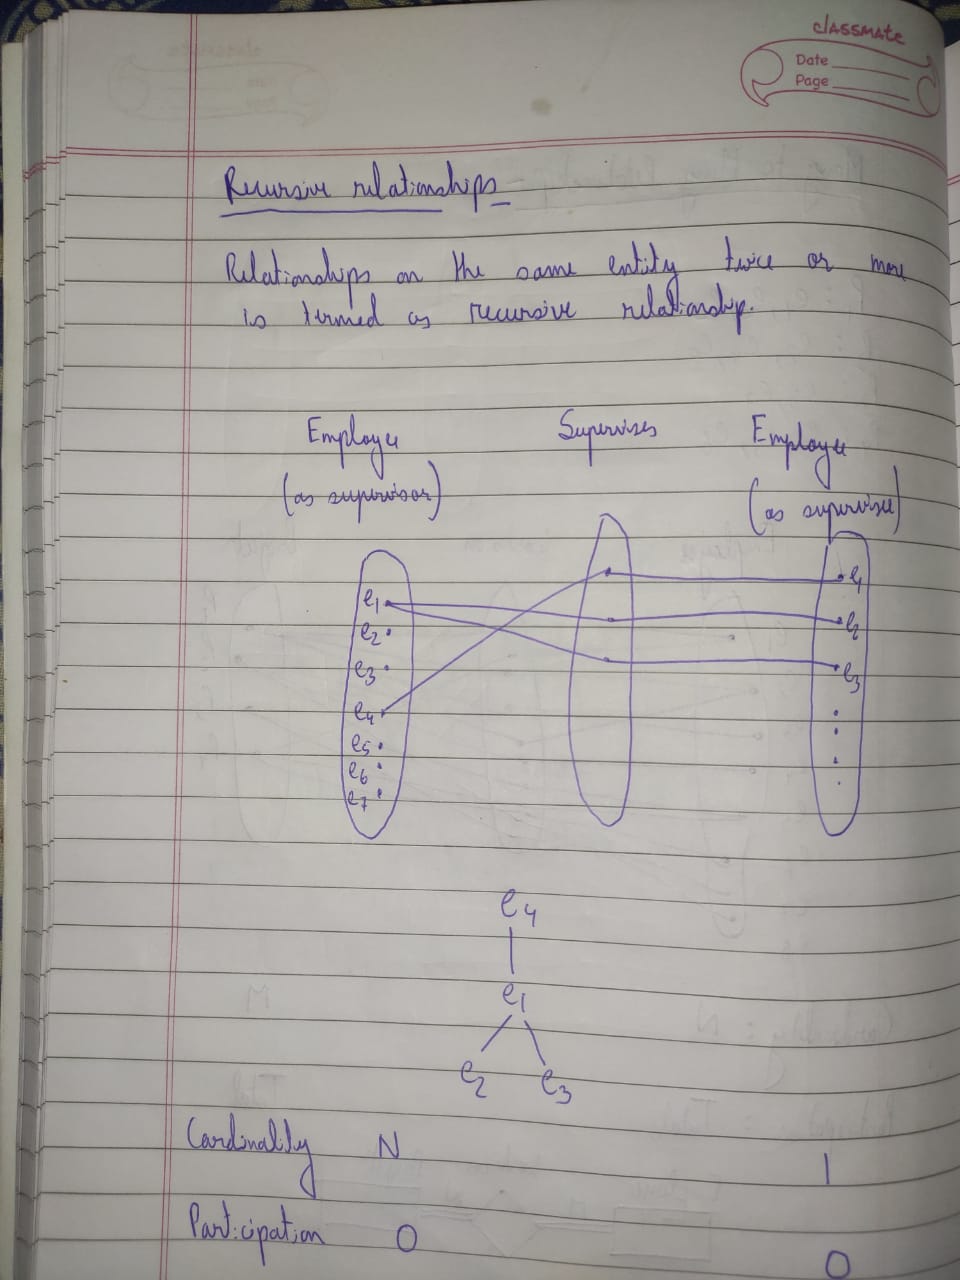 classmate
Date
Page
Recursive relationships
Relationships on the same entity twice or more
is termed as recursive relationship.
Employee Supervises Employee
(as supervisor) (as supervisee)
e1 e1
e2 e2
e3 e3
e4
e5
e6
e7
e4
e1
e2 e3
Cardinality N 1
Participation 0 0